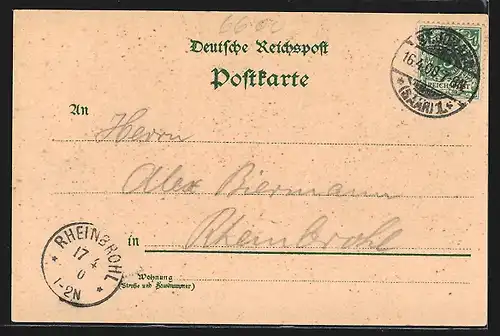 6600
Deutsche Reichspost
Postkarte
An
Herrn
Alex Biermann
in Rheinbrohl
Wohnung
(Straße und Hausnummer)
* RHEINBROHL *
17 4 0
1-2N
16.4.00
* (SAAR) 1. *